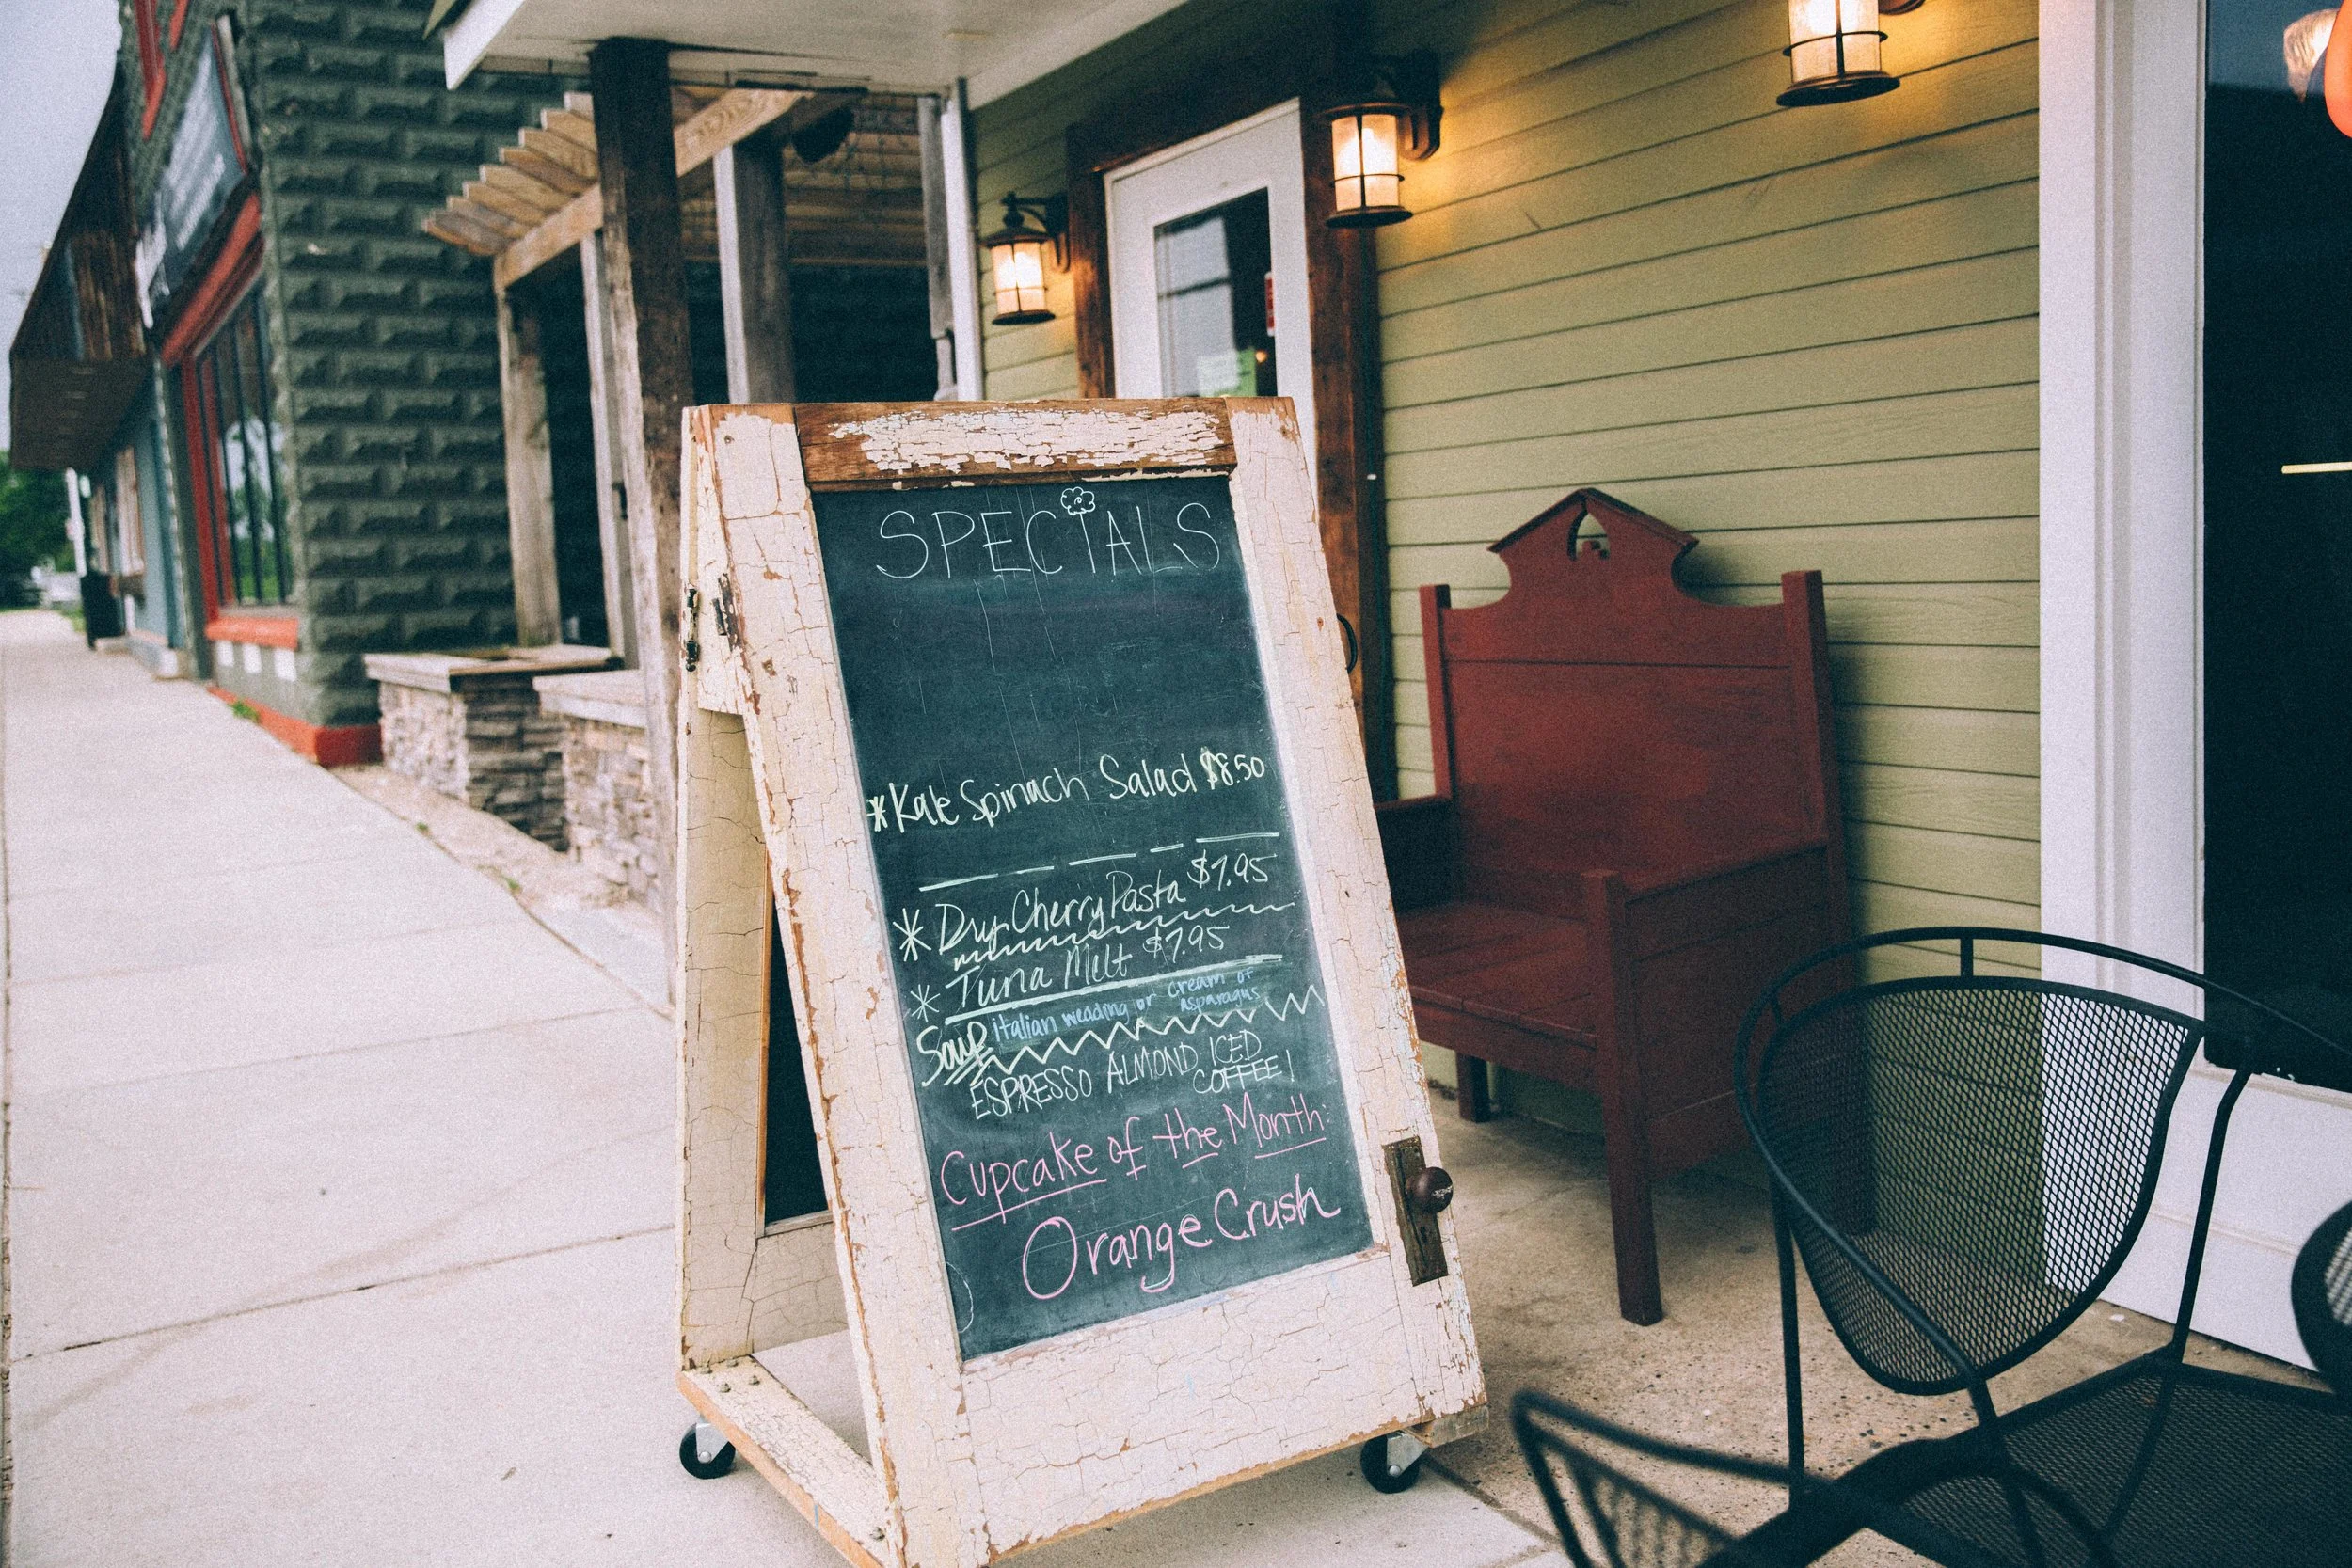 SPECIALS
*Kale Spinach Salad $8.50
* Dry Cherry Pasta $7.95
* Tuna Melt $7.95
Soup italian wedding or cream of
asparagus
ESPRESSO ALMOND ICED
COFFEE!
Cupcake of the Month:
Orange Crush